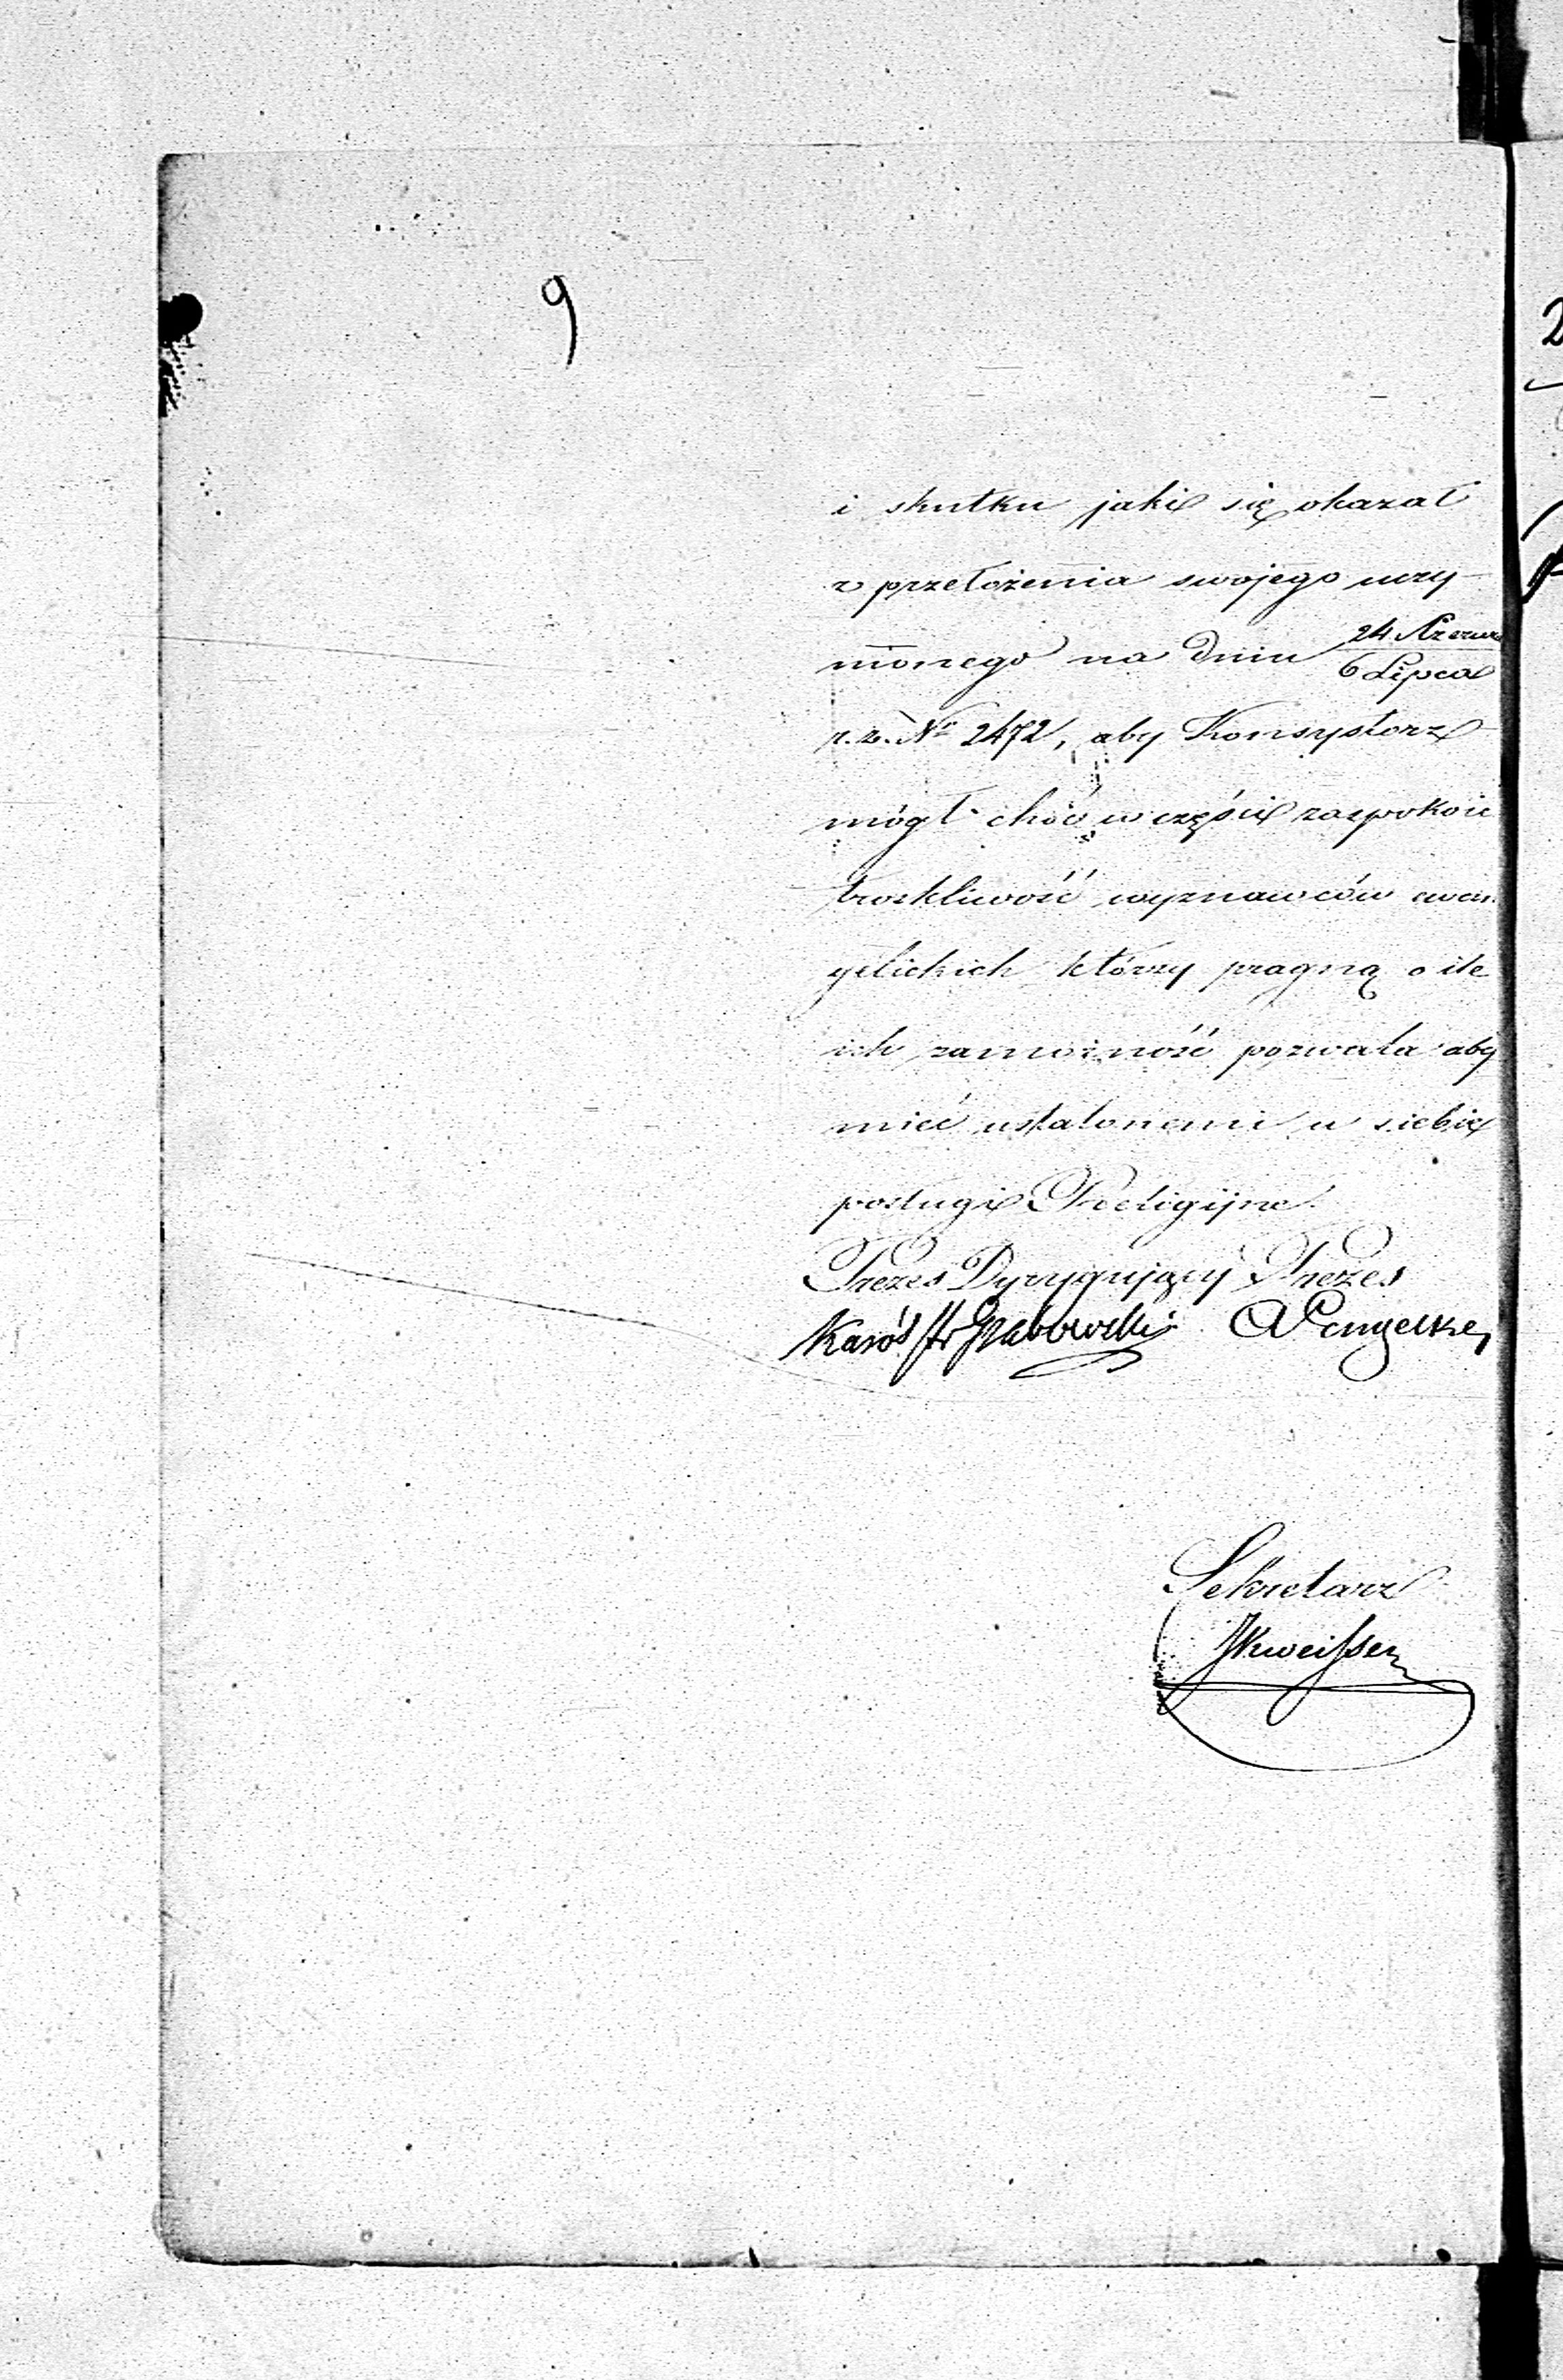 9
i skutku jaki się okazał
z przełożenia swojego uczy-
nionego na dniu 24 Czerwca / 6 Lipca
r. z. Nr 2472, aby Konsystorz
mógł choć w części zaspokoić
troskliwość wyznawców ewan
gelickich którzy pragną o ile
ich zamożność pozwala aby
mieć ustalonemi u siebie
posługi Religijne.
Prezes Dyrygujący Prezes
Karól Hr Grabowski
Sekretarz